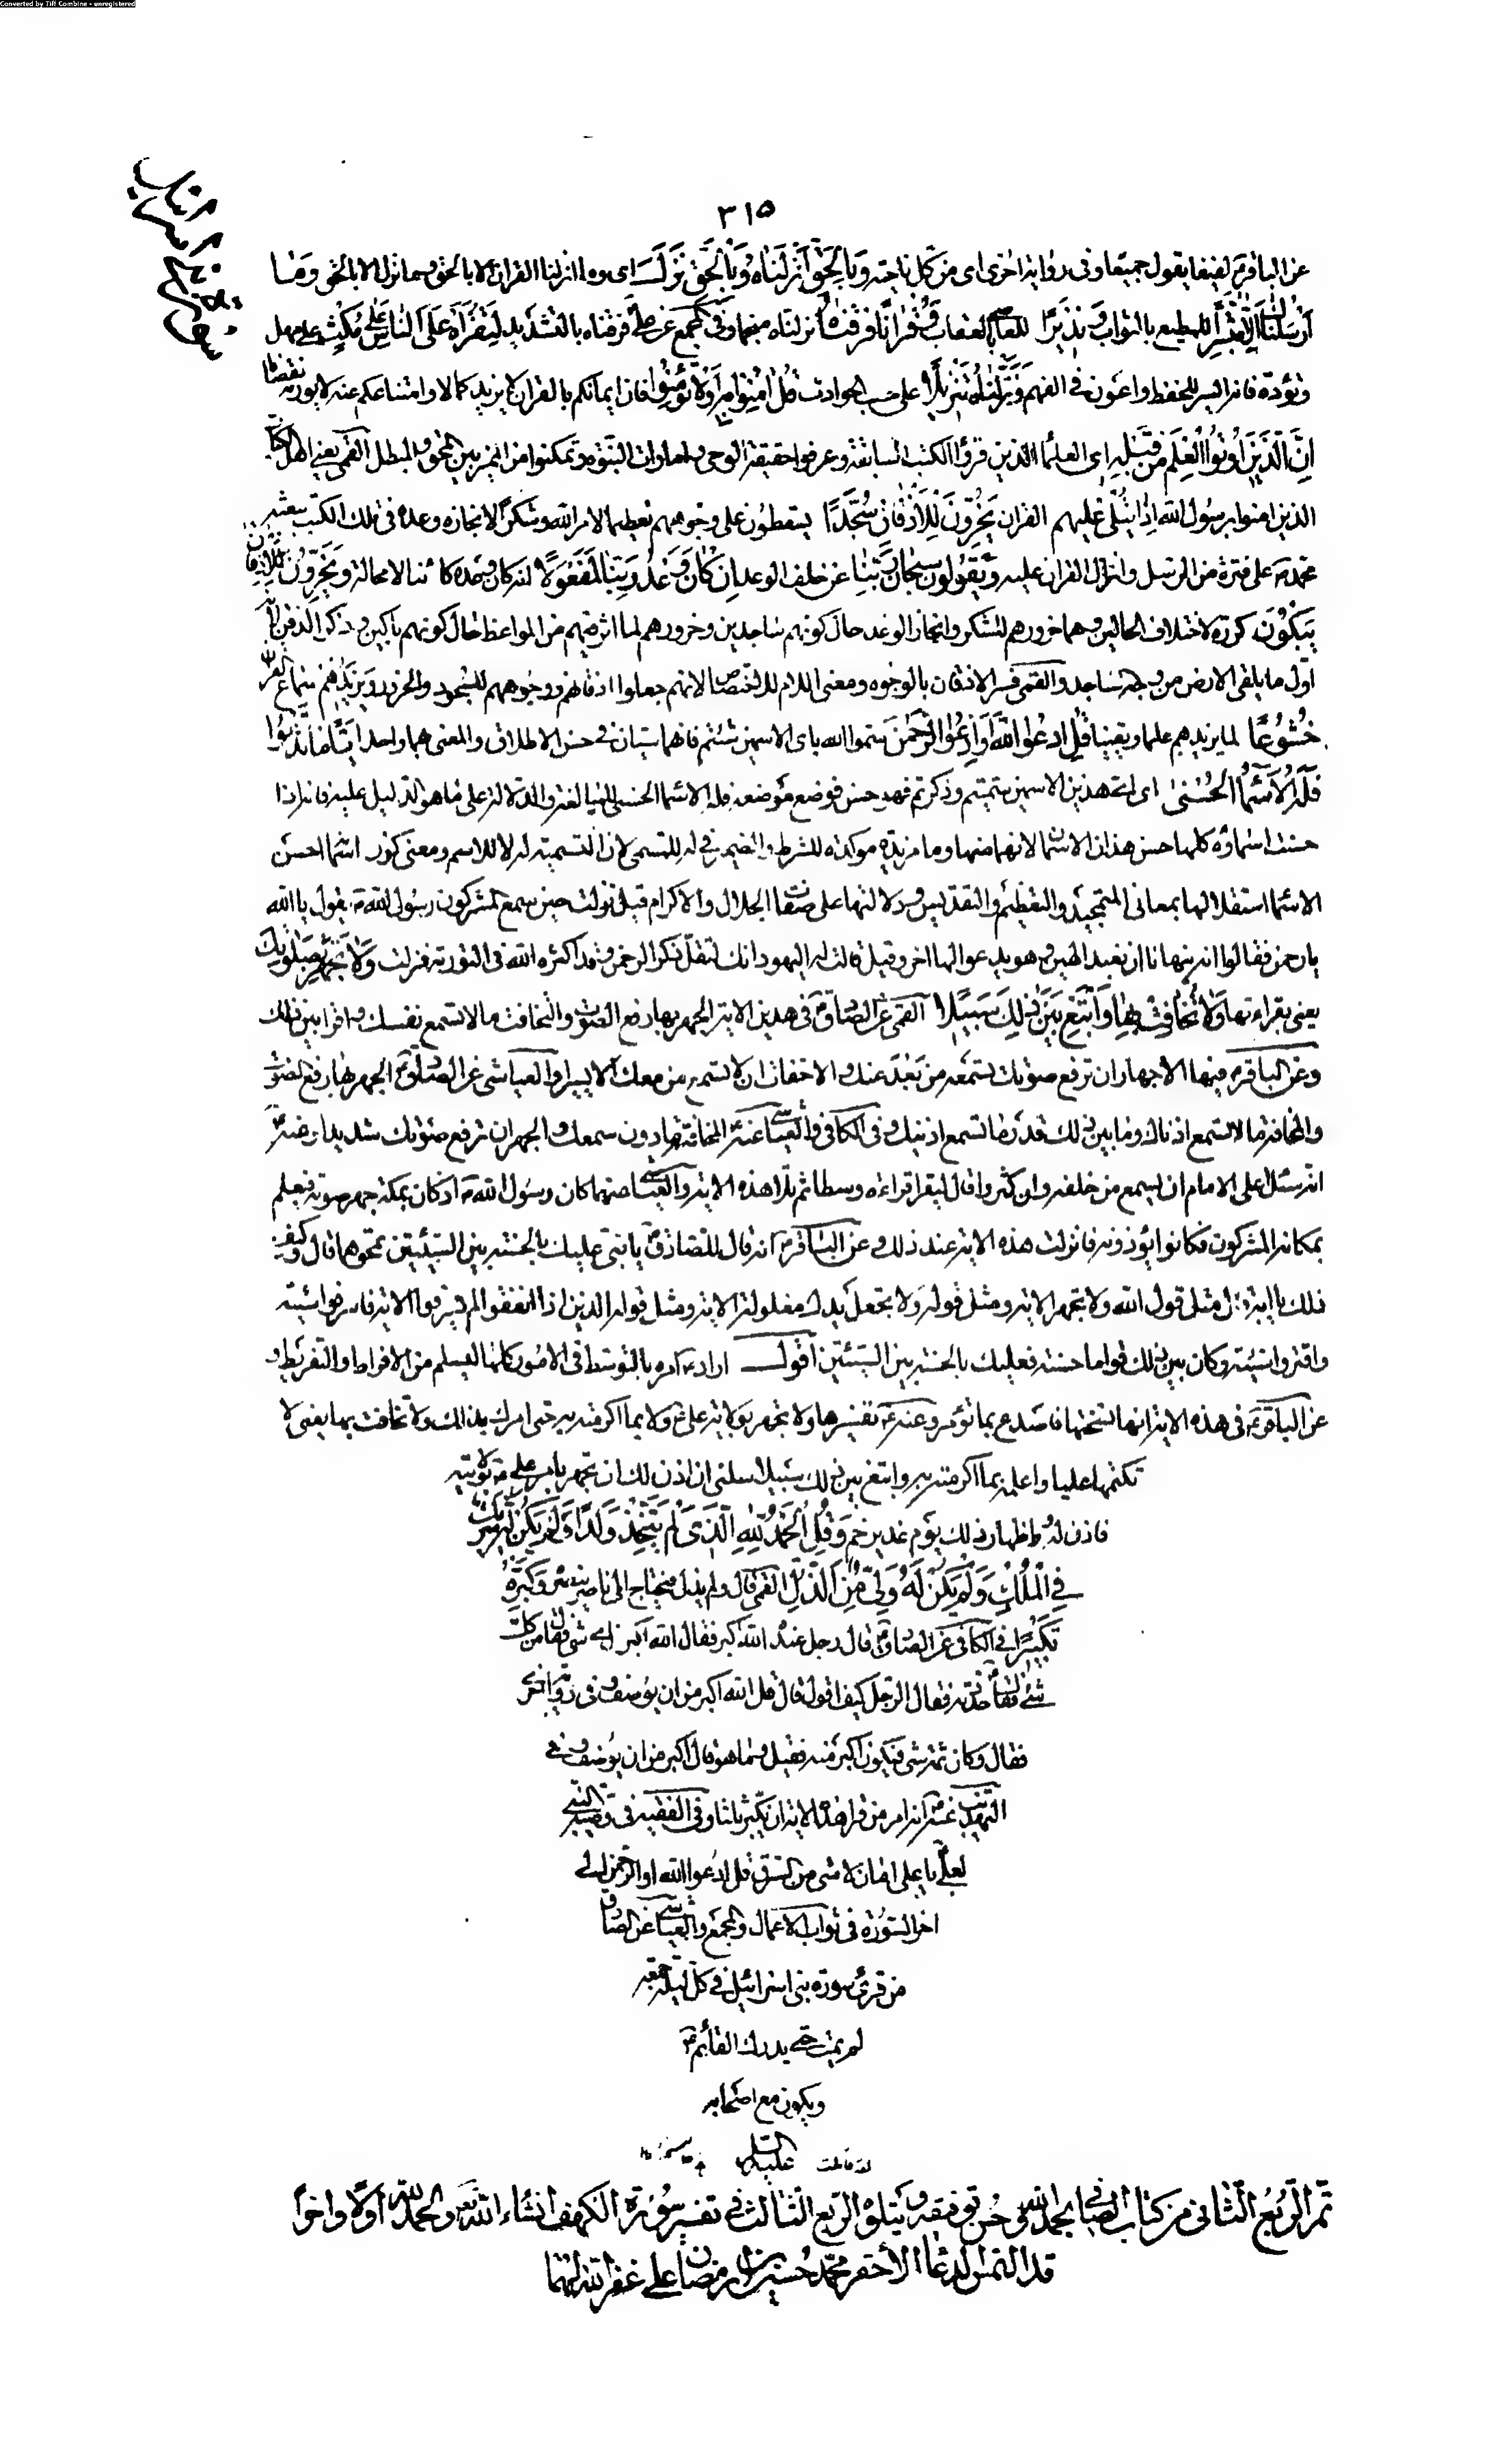 Converted by Tiff Combine - unregistered
٣١٥
عن الباقر ع لفيفا يقول جميعا وفى رواية اخرى اى من كل ناحية وَبِالْحَقِّ اَنْزَلْنَاهُ وَبِالْحَقِّ نَزَلَ اى وما انزلنا القران الا بالحق وما نزل الا بالحق وَمٰا
اَرْسَلْنَاكَ اِلَّا مُبَشِّرًا للمطيع بالثواب وَنَذِيرًا للعاصى بالعقاب وَقُرْاٰنًا فَرَقْنَاهُ نزلناه منجما وفى المجمع عن على ع فرقناه بالتشديد لِتَقْرَاَهُ عَلَى النَّاسِ عَلٰى مُكْثٍ على مهل
وتؤدة فانه ايسر للحفظ واعون فى الفهم وَنَزَّلْنَاهُ تَنْزِيلًا على حسب الحوادث قُلْ اٰمِنُوا بِهِ اَوْ لَا تُؤْمِنُوا فان ايمانكم بالقران لا يزيده كمالا وامتناعكم عنه لا يورثه نقصانا
اِنَّ الَّذِينَ اُوتُوا الْعِلْمَ مِنْ قَبْلِهِ اى العلماء الذين قرؤا الكتب السابقة وعرفوا حقيقة الوحى وامارات النبوة وتمكنوا من الميز بين المحق والمبطل القمى يعنى اهل الكتاب
الذين امنوا برسول الله اِذَا يُتْلٰى عَلَيْهِمْ القران يَخِرُّونَ لِلْاَذْقَانِ سُجَّدًا يسقطون على وجوههم تعظيما لامر الله وشكرا لانجازه وعده فى تلك الكتب ببعثة
محمد ص على فترة من الرسل وانزال القران عليه وَيَقُولُونَ سُبْحَانَ رَبِّنَا عن خلف الوعد اِنْ كَانَ وَعْدُ رَبِّنَا لَمَفْعُولًا انه كان وعده كائنا لا محالة وَيَخِرُّونَ لِلْاَذْقَانِ
يَبْكُونَ كرره لاختلاف الحالين وهما خرورهم للشكر وانجاز الوعد حال كونهم ساجدين وخرورهم لما اثر فيهم من المواعظ حال كونهم باكين وذكر الذقن لانه
اول ما يلقى الارض من وجه الساجد والقمى فسر الاذقان بالوجوه ومعنى اللام للاختصاص لانهم جعلوا اذقانهم ووجوههم للسجود والخرور وَيَزِيدُهُمْ سماع القران
خُشُوعًا لما يزيدهم علما ويقينا قُلِ ادْعُوا اللّٰهَ اَوِ ادْعُوا الرَّحْمٰنَ سموا الله باى الاسمين شئتم فانهما سيان فى حسن الاطلاق والمعنى بهما واحد اَيًّا مَا تَدْعُوا
فَلَهُ الْاَسْمَاءُ الْحُسْنٰى اى اى هذين الاسمين سميتم وذكرتم فهو حسن فوضع موضعه فله الاسماء الحسنى للمبالغة والدلالة على ما هو الدليل عليه فانه اذا
حسنت اسماؤه كلها حسن هذان الاسمان لانهما منها وما مزيدة مؤكدة للشرط والضمير فى له للمسمى لان التسمية له لا للاسم ومعنى كون اسماء احسن
الاسماء استقلالها بمعانى التمجيد والتعظيم والتقديس ودلالتها على صفات الجلال والاكرام قيل نزلت حين سمع المشركون رسول الله ص يقول يا الله
يا رحمن فقالوا انه ينهانا ان نعبد الهين وهو يدعو الها اخر وقيل قالت له اليهود انك لتقل ذكر الرحمن وقد اكثره الله فى التورية فنزلت وَلَا تَجْهَرْ بِصَلٰوتِكَ
يعنى بقراءتها وَلَا تُخَافِتْ بِهَا وَابْتَغِ بَيْنَ ذٰلِكَ سَبِيلًا القمى عن الصادق ع فى هذه الاية الجهر بها رفع الصوت والتخافت ما لا تسمع نفسك واقرا بين ذلك
وعن الباقر ع فيها الاجهار ان ترفع صوتك تسمعه من بعد عنك والاخفات ان لا تسمع من معك الا يسيرا والعياشى عن الصادق ع الجهر بها رفع الصوت
والمخافتة ما لا تسمع اذناك وما بين ذلك قدر ما تسمع اذنيك وفى الكافى والعياشى عنه ع المخافتة ما دون سمعك والجهر ان ترفع صوتك شديدا وعنه ع
انه سئل على الامام ان يسمع من خلفه وان كثروا قال ليقرا قراءة وسطا ثم تلا هذه الاية والعياشى عنهما كان رسول الله ص اذ كان بمكة جهر صوته فيعلم
بمكانه المشركون فكانوا يؤذونه فانزلت هذه الاية عند ذلك وعن الباقر ع انه قال للصادق ع يا بنى عليك بالحسنة بين السيئتين تمحوهما قال وكيف
ذلك يا ابه قال مثل قول الله ولا تجهر الاية ومثل قوله ولا تجعل يدك مغلولة الاية ومثل قوله الذين اذا انفقوا لم يسرفوا الاية فاسرفوا سيئة
واقتروا سيئة وكان بين ذلك قواما حسنة فعليك بالحسنة بين السيئتين اقول اراد ع امره بالتوسط فى الامور كلها ليسلم من الافراط والتفريط و
عن الباقر ع فى هذه الاية انها نسختها فاصدع بما تؤمر وعنه ع تفسيرها ولا تجهر بولاية على ع ولا بما اكرمته به حتى امرك بذلك ولا تخافت بها يعنى لا
تكتمها عليا واعلمه بما اكرمته به وابتغ بين ذلك سبيلا سلنى ان اذن لك ان تجهر بامر على ع بولايته
فاذن له باظهار ذلك يوم غدير خم وَقُلِ الْحَمْدُ لِلّٰهِ الَّذِى لَمْ يَتَّخِذْ وَلَدًا وَلَمْ يَكُنْ لَهُ شَرِيكٌ
فِى الْمُلْكِ وَلَمْ يَكُنْ لَهُ وَلِىٌّ مِنَ الذُّلِّ القمى قال ولم يذل فيحتاج الى ناصر ينصره وَكَبِّرْهُ
تَكْبِيرًا فى الكافى عن الصادق ع قال رجل عنده الله اكبر فقال الله اكبر من اى شئ فقال من كل
شئ فقال ع حددته فقال الرجل كيف اقول قال قل الله اكبر من ان يوصف وفى رواية اخرى
فقال وكان ثم شئ فيكون اكبر منه فقيل وما هو قال اكبر من ان يوصف وفى
التهذيب عنه ع انه امر من قرا هذه الاية ان يكبر ثلثا وفى الفقيه فى وصية النبى
لعلى ع يا على امان لامتى من السرق قل ادعوا الله او ادعوا الرحمن الى
اخر السورة فى ثواب الاعمال والمجمع والعياشى عن الصادق
من قرئ سورة بنى اسرائيل فى كل ليلة جمعة
لم يمت حتى يدرك القائم ع
ويكون مع اصحابه
عليه السلم
تم الربع الثانى من كتاب الصافى بحمد الله وحسن توفيقه ويتلوه الربع الثالث فى تفسير سورة الكهف انشاء الله تع والحمد لله اولا واخرا
قد التمس الدعا الاحقر محمد حسين بن رمضان على غفر الله لهما